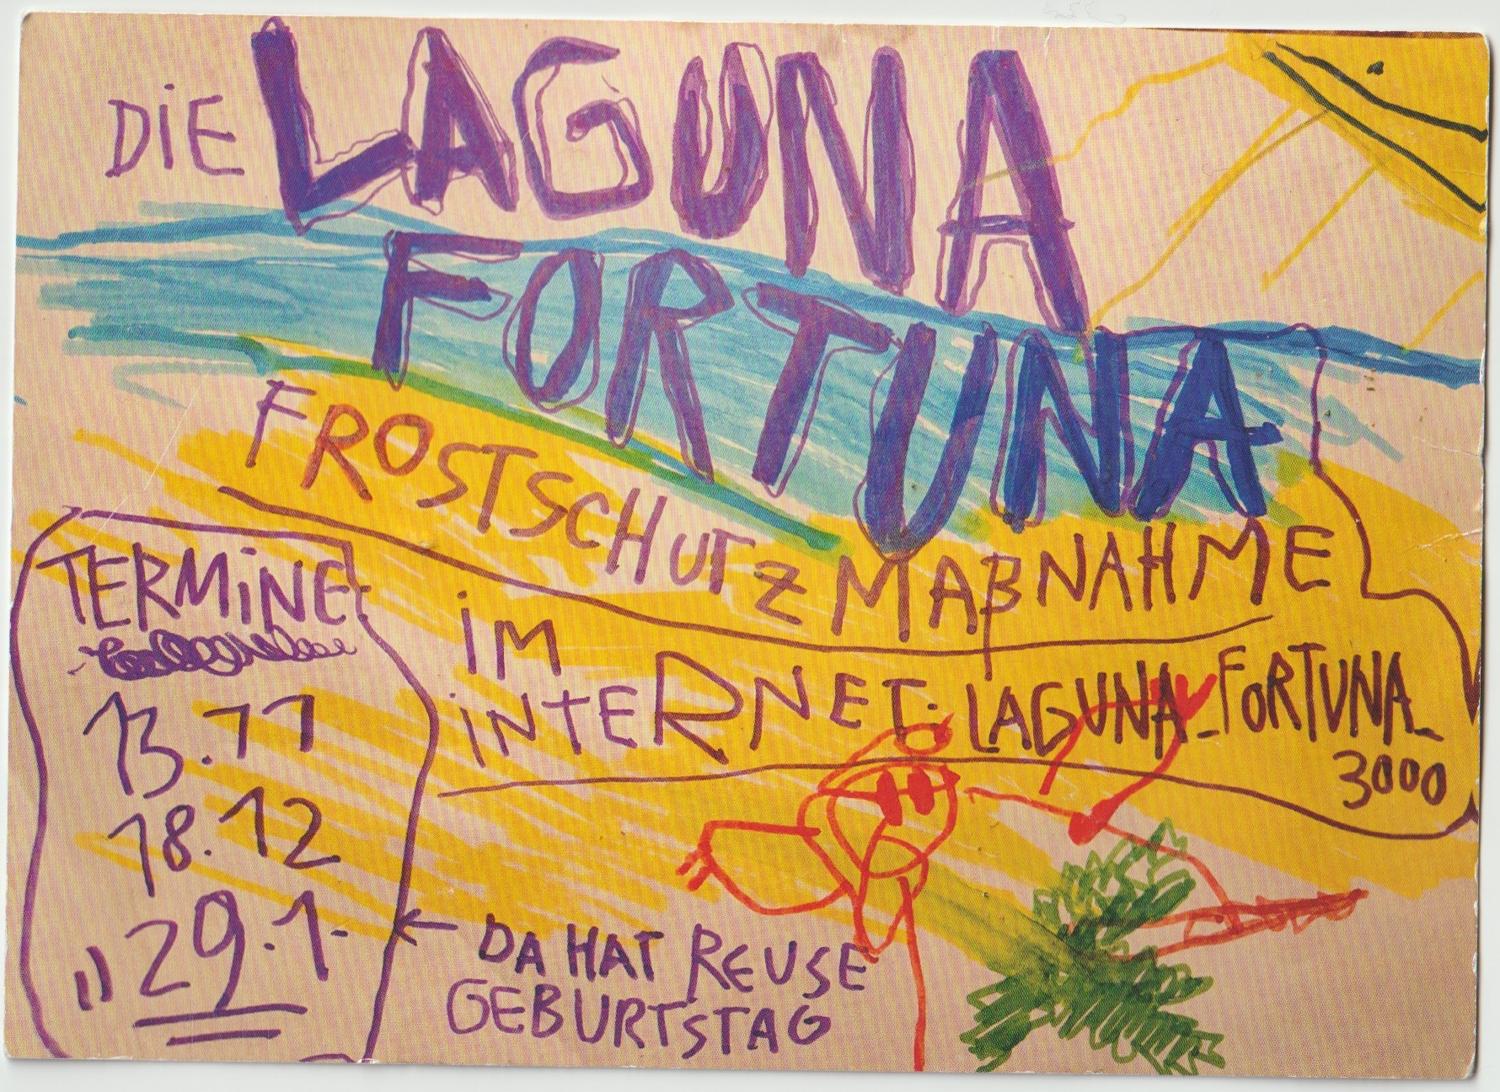 DiE LAGUNA
FORTUNA
FROSTSCHUTZMAßNAHME
iM
iNTERNET: LAGUNA_FORTUNA_
3000
TERMiNE
13.11
18.12
"29.1-
← DA HAT REUSE
GEBURTSTAG